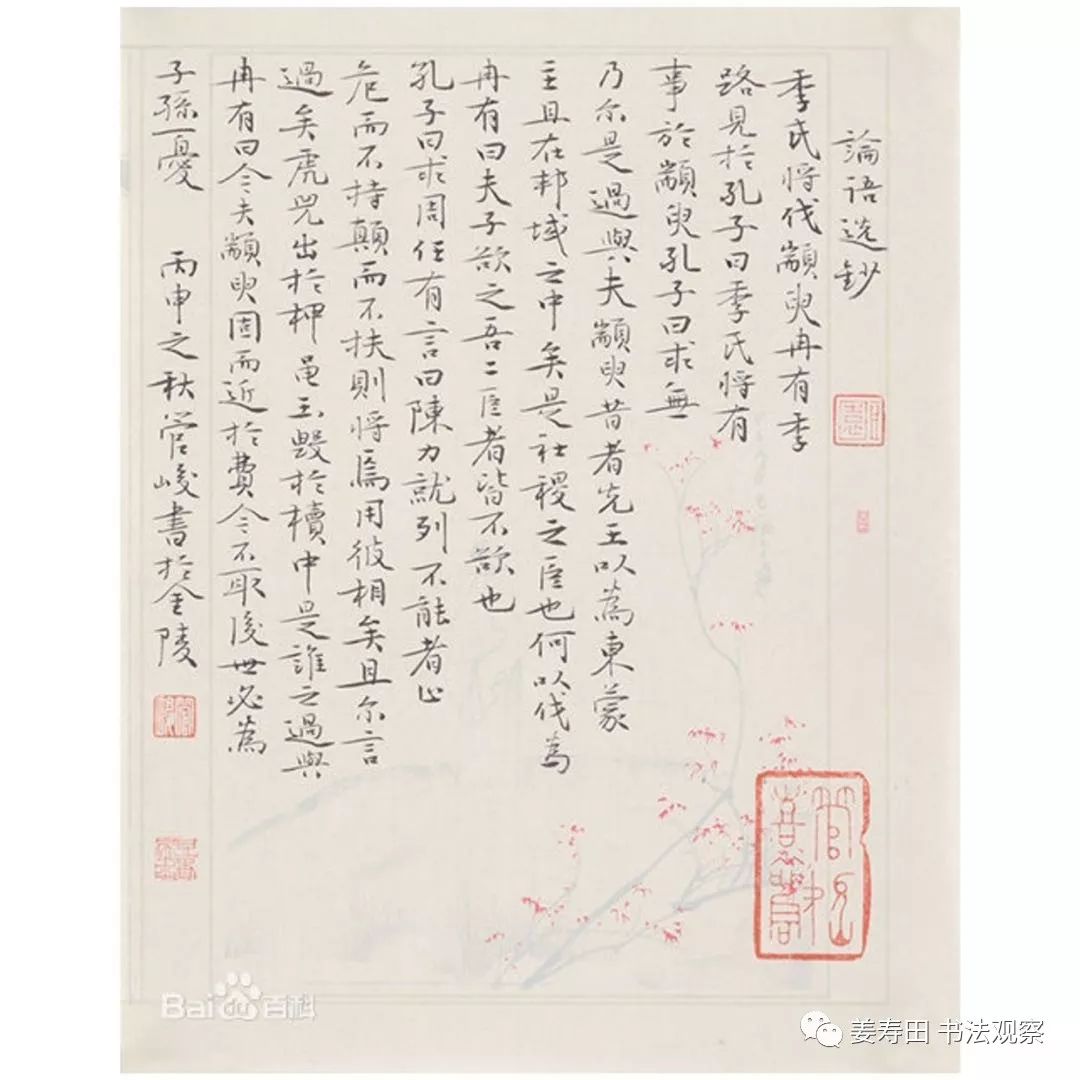 論語選鈔
季氏將伐顓臾冉有季
路見於孔子曰季氏將有
事於顓臾孔子曰求無
乃尔是過與夫顓臾昔者先王以為東蒙
主且在邦域之中矣是社稷之臣也何以伐為
冉有曰夫子欲之吾二臣者皆不欲也
孔子曰求周任有言曰陳力就列不能者止
危而不持顛而不扶則將焉用彼相矣且尔言
過矣虎兕出於柙龟玉毀於櫝中是誰之過與
冉有曰今夫顓臾固而近於費今不取後世必為
子孫憂 丙申之秋管峻書於金陵
Baidu百科
姜寿田 书法观察